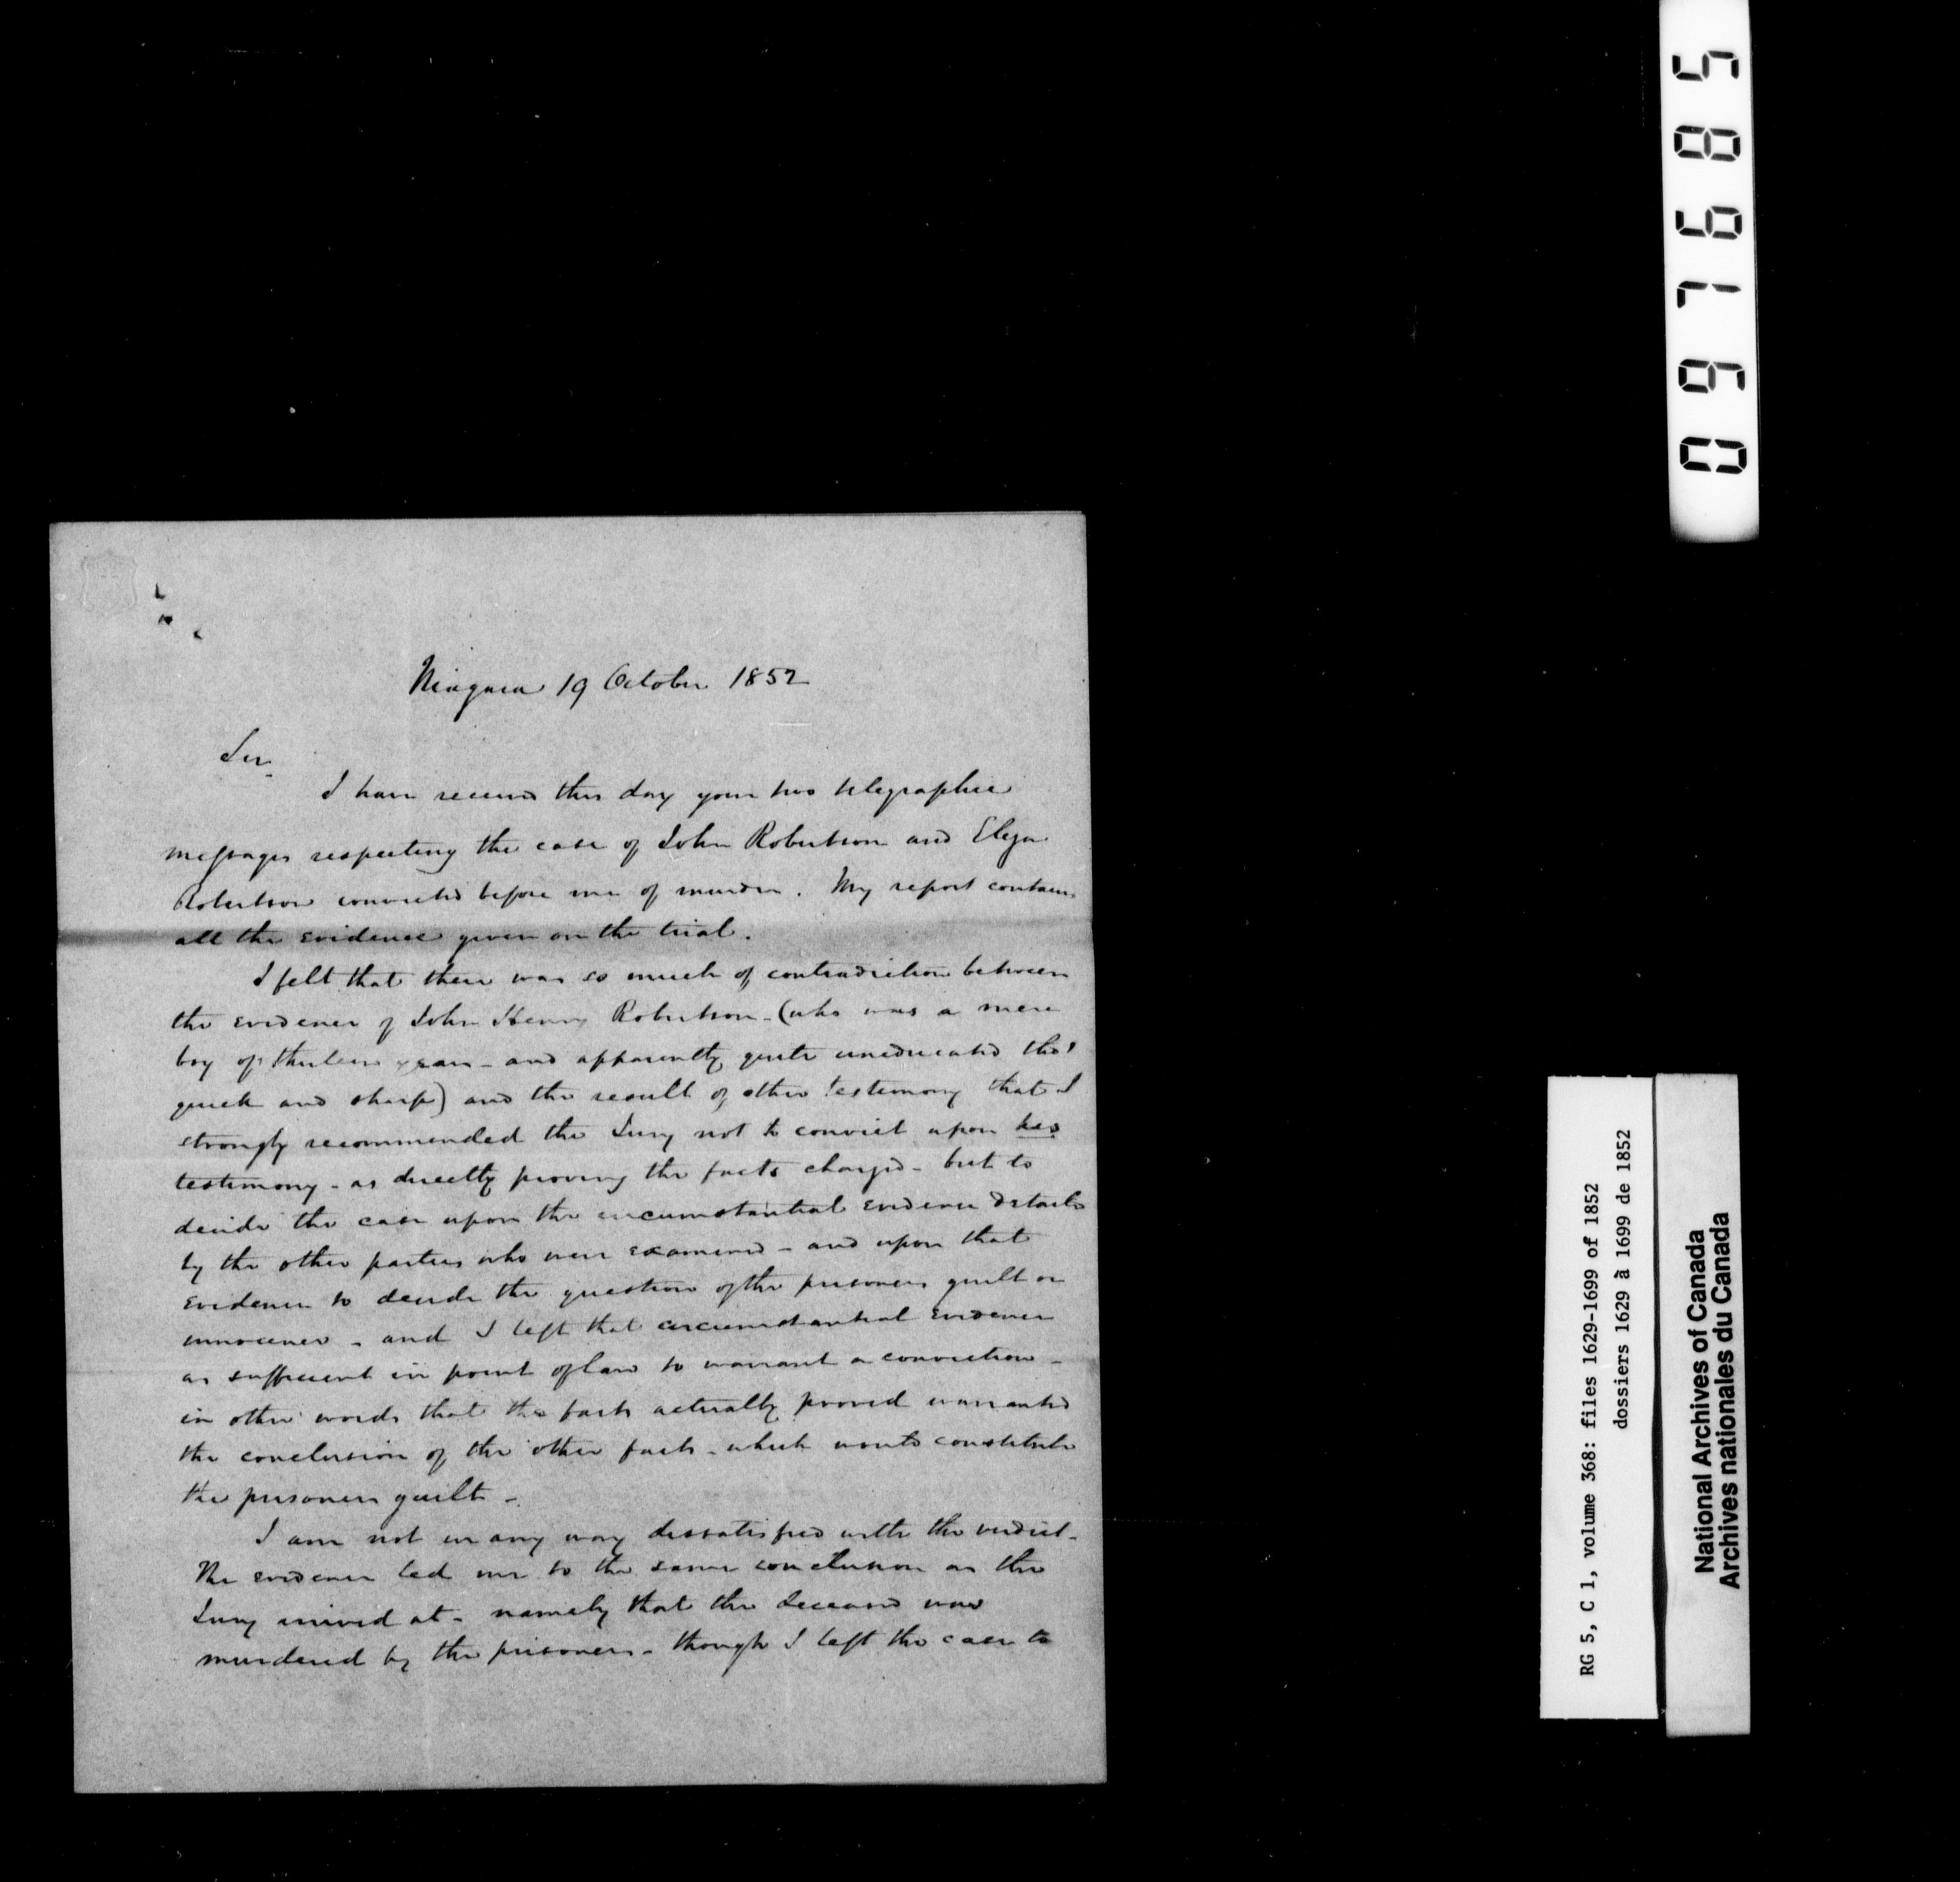 Niagara 19 October 1852
Sir
I have received this day your two telegraphic
messages respecting the case of John Robertson and Eliza
Robertson convicted before me of murder. My report contains
all the evidence given on the trial.
I felt that there was so much of contradiction between
the evidence of John Henry Robertson - (who was a mere
boy of thirteen years - and apparently quite uneducated tho'
quick and sharp) and the result of other testimony that I
strongly recommended the Jury not to convict upon his
testimony - as directly proving the facts charged - but to
decide the case upon the circumstantial evidence detailed
by the other parties who were examined - and upon that
evidence to decide the question of the prisoners guilt or
innocence - and I left that circumstantial evidence
as sufficient in point of law to warrant a conviction -
in other words that the facts actually proved warranted
the conclusion of the other facts - which would constitute
the prisoners guilt -
I am not in any way dissatisfied with the verdict -
The evidence led me to the same conclusion as the
Jury arrived at - namely that the deceased was
murdered by the prisoners - though I left the case to
097685
RG 5, C 1, volume 368: files 1629-1699 of 1852
dossiers 1629 à 1699 de 1852
National Archives of Canada
Archives nationales du Canada